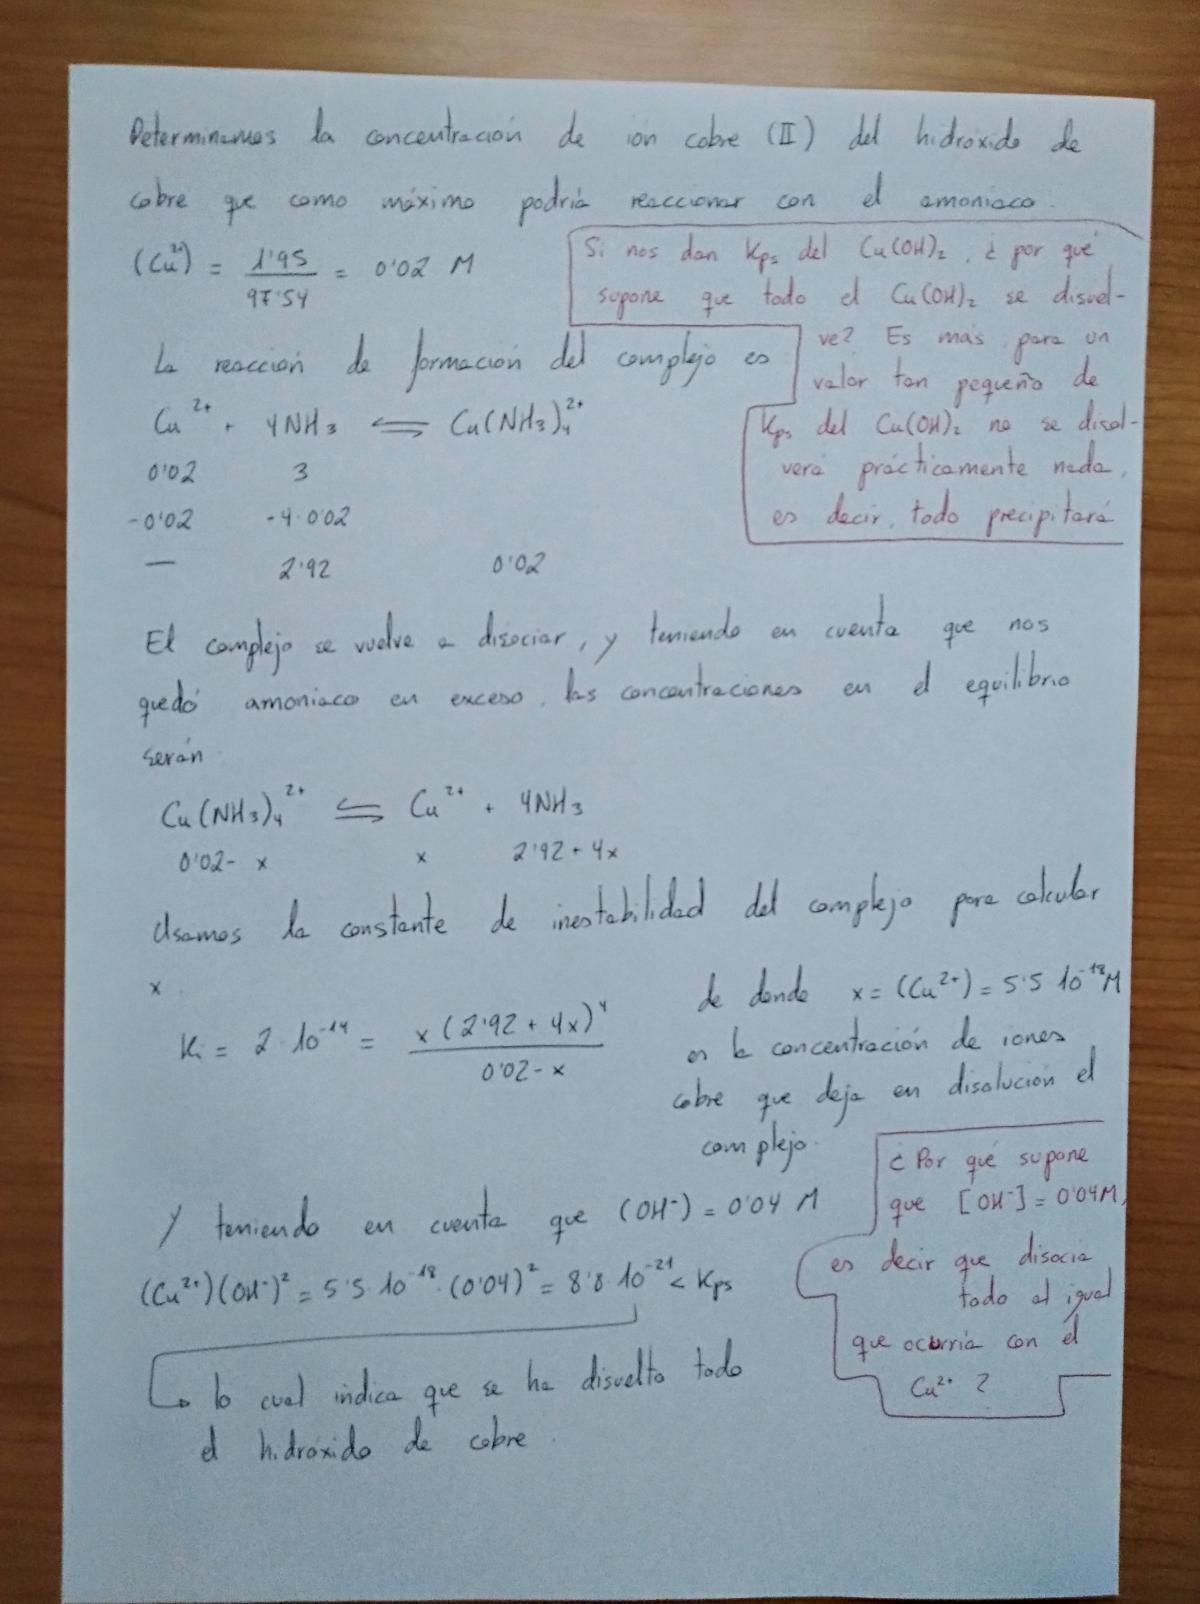 Determinamos la concentración de ion cobre (II) del hidróxido de
cobre que como máximo podría reaccionar con el amoniaco.
(Cu²⁺) = 1'95 / 97'54 = 0'02 M
Si nos dan Kps del Cu(OH)₂, ¿por qué
supone que todo el Cu(OH)₂ se disuel-
ve? Es más, para un
valor tan pequeño de
Kps del Cu(OH)₂ no se disol-
verá prácticamente nada,
es decir, todo precipitará
La reacción de formación del complejo es
Cu²⁺ + 4NH₃ ⇌ Cu(NH₃)₄²⁺
0'02 3
-0'02 -4·0'02
— 2'92 0'02
El complejo se vuelve a disociar, y teniendo en cuenta que nos
quedó amoniaco en exceso, las concentraciones en el equilibrio
serán
Cu(NH₃)₄²⁺ ⇌ Cu²⁺ + 4NH₃
0'02 - x x 2'92 + 4x
Usamos la constante de inestabilidad del complejo para calcular
x.
Ki = 2·10⁻¹⁴ = x(2'92 + 4x)⁴ / 0'02 - x
de donde x = (Cu²⁺) = 5'5 10⁻¹⁸ M
es la concentración de iones
cobre que deja en disolución el
complejo.
Y teniendo en cuenta que (OH⁻) = 0'04 M
(Cu²⁺)(OH⁻)² = 5'5·10⁻¹⁸·(0'04)² = 8'8·10⁻²¹ < Kps
lo cual indica que se ha disuelto todo
el hidróxido de cobre.
¿Por qué supone
que [OH⁻] = 0'04M,
es decir que disocia
todo al igual
que ocurría con el
Cu²⁺?